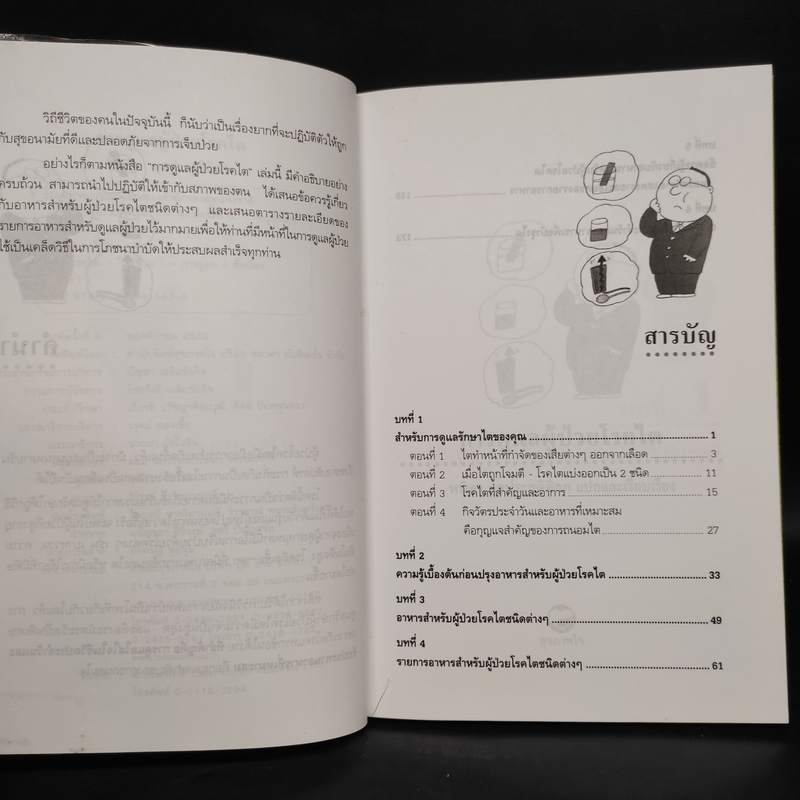 วิถีชีวิตของคนในปัจจุบันนี้ ก็นับว่าเป็นเรื่องยากที่จะปฏิบัติตัวให้ถูก
กับสุขอนามัยที่ดีและปลอดภัยจากการเจ็บป่วย
อย่างไรก็ตามหนังสือ "การดูแลผู้ป่วยโรคไต" เล่มนี้ มีคำอธิบายอย่าง
ครบถ้วน สามารถนำไปปฏิบัติให้เข้ากับสภาพของตน ได้เสนอข้อควรรู้เกี่ยว
กับอาหารสำหรับผู้ป่วยโรคไตชนิดต่างๆ และเสนอตารางรายละเอียดของ
รายการอาหารสำหรับดูแลผู้ป่วยไว้มากมายเพื่อให้ท่านที่มีหน้าที่ในการดูแลผู้ป่วย
ใช้เป็นเคล็ดวิธีในการโภชนาบำบัดให้ประสบผลสำเร็จทุกท่าน
สารบัญ
บทที่ 1
สำหรับการดูแลรักษาไตของคุณ ........ 1
ตอนที่ 1 ไตทำหน้าที่กำจัดของเสียต่างๆ ออกจากเลือด ........ 3
ตอนที่ 2 เมื่อไตถูกโจมตี - โรคไตแบ่งออกเป็น 2 ชนิด ........ 11
ตอนที่ 3 โรคไตที่สำคัญและอาการ ........ 15
ตอนที่ 4 กิจวัตรประจำวันและอาหารที่เหมาะสม
คือกุญแจสำคัญของการถนอมไต ........ 27
บทที่ 2
ความรู้เบื้องต้นก่อนปรุงอาหารสำหรับผู้ป่วยโรคไต ........ 33
บทที่ 3
อาหารสำหรับผู้ป่วยโรคไตชนิดต่างๆ ........ 49
บทที่ 4
รายการอาหารสำหรับผู้ป่วยโรคไตชนิดต่างๆ ........ 61